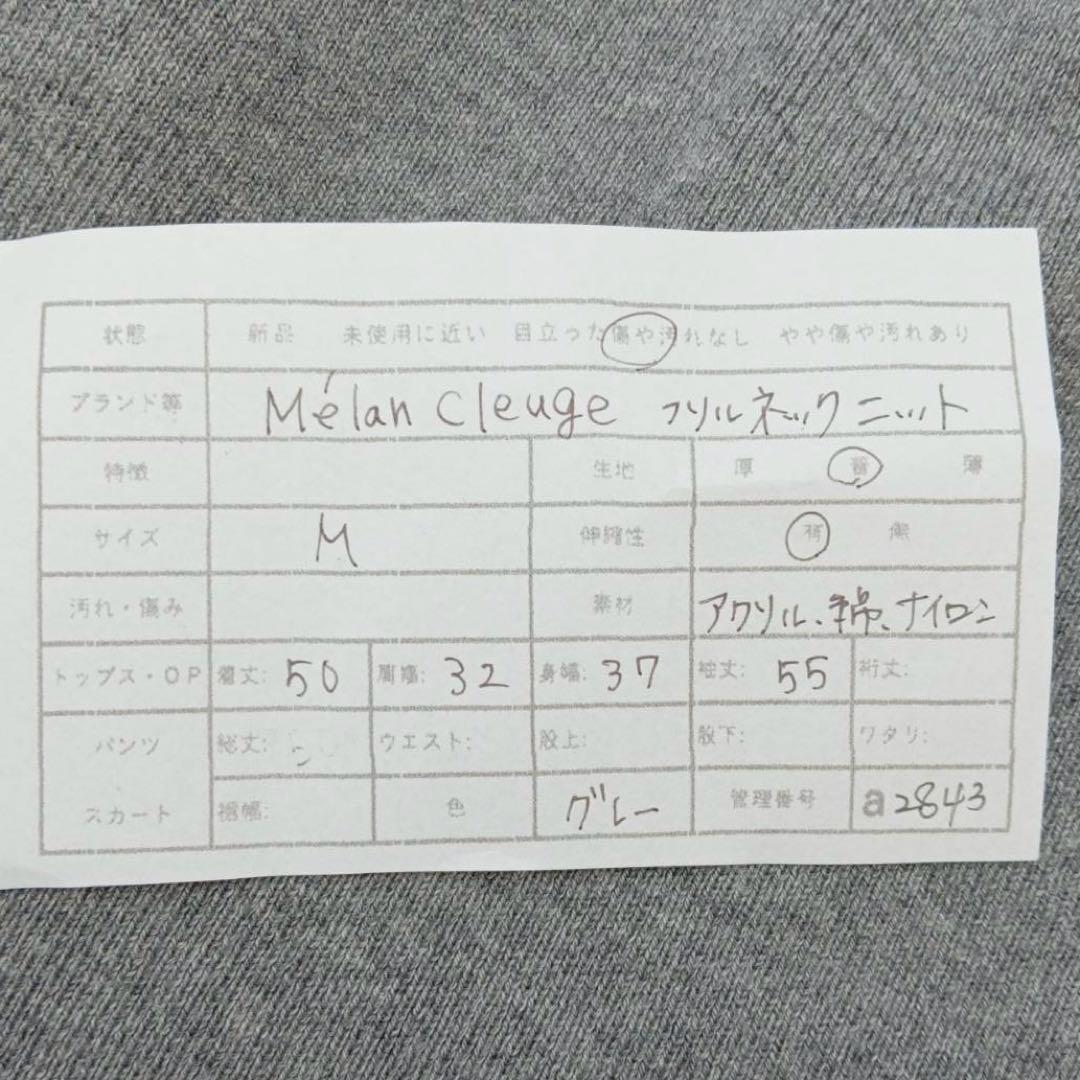 状態 新品 未使用に近い 目立った傷や汚れなし やや傷や汚れあり
ブランド等 Mélan Cleuge フリルネックニット
特徴 生地 厚 普 薄
サイズ M 伸縮性 有 無
汚れ・傷み 素材 アクリル、綿、ナイロン
トップス・OP 着丈: 50 肩幅: 32 身幅: 37 袖丈: 55 裄丈:
パンツ 総丈: ウエスト: 股上: 股下: ワタリ:
スカート 裾幅: 色 グレー 管理番号 a2843